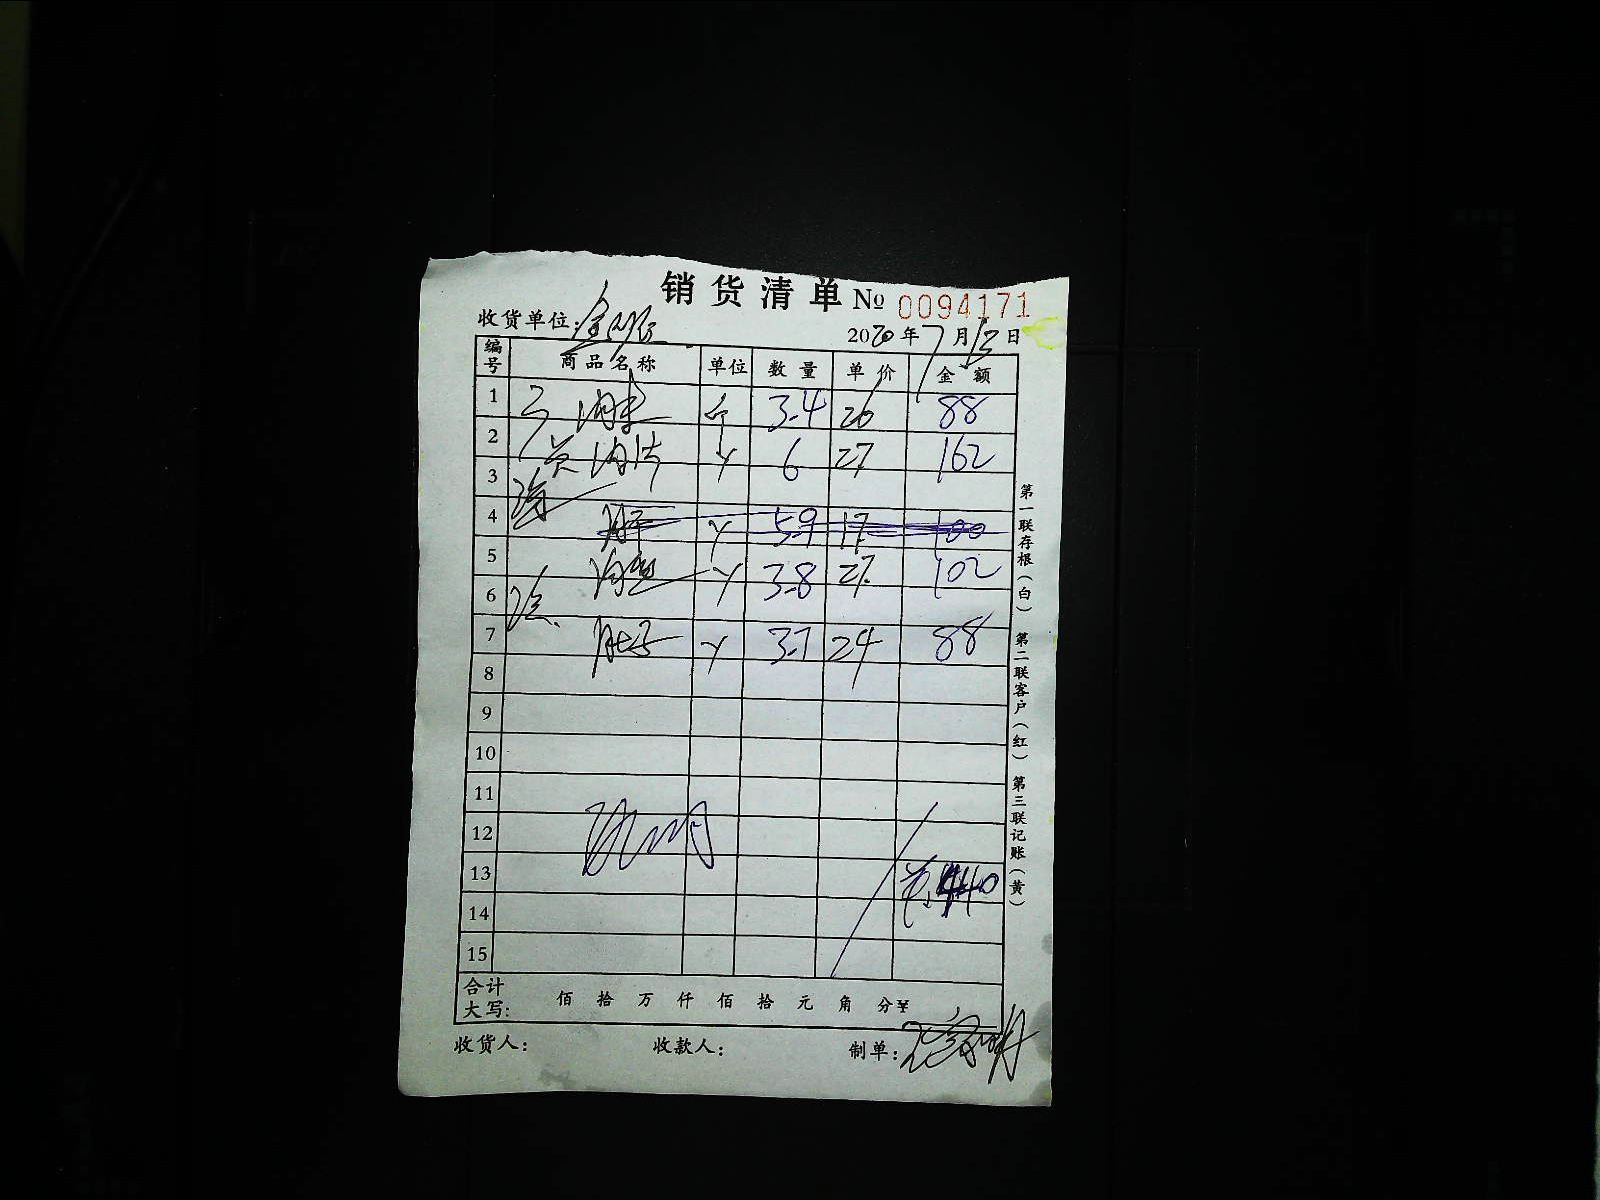 销货清单 № 0094171
收货单位:
2020年7月12日
编号 商品名称 单位 数量 单价 金额
1 3.4 26 88
2 肉片 6 27 162
3
4 5.9 17 100
5 肉丝 3.8 27 102
6
7 肚子 3.7 24 88
8
9
10
11
12
13 440
14
15
合计
大写: 佰 拾 万 仟 佰 拾 元 角 分 ¥
收货人: 收款人: 制单:
第一联存根(白) 第二联客户(红) 第三联记账(黄)